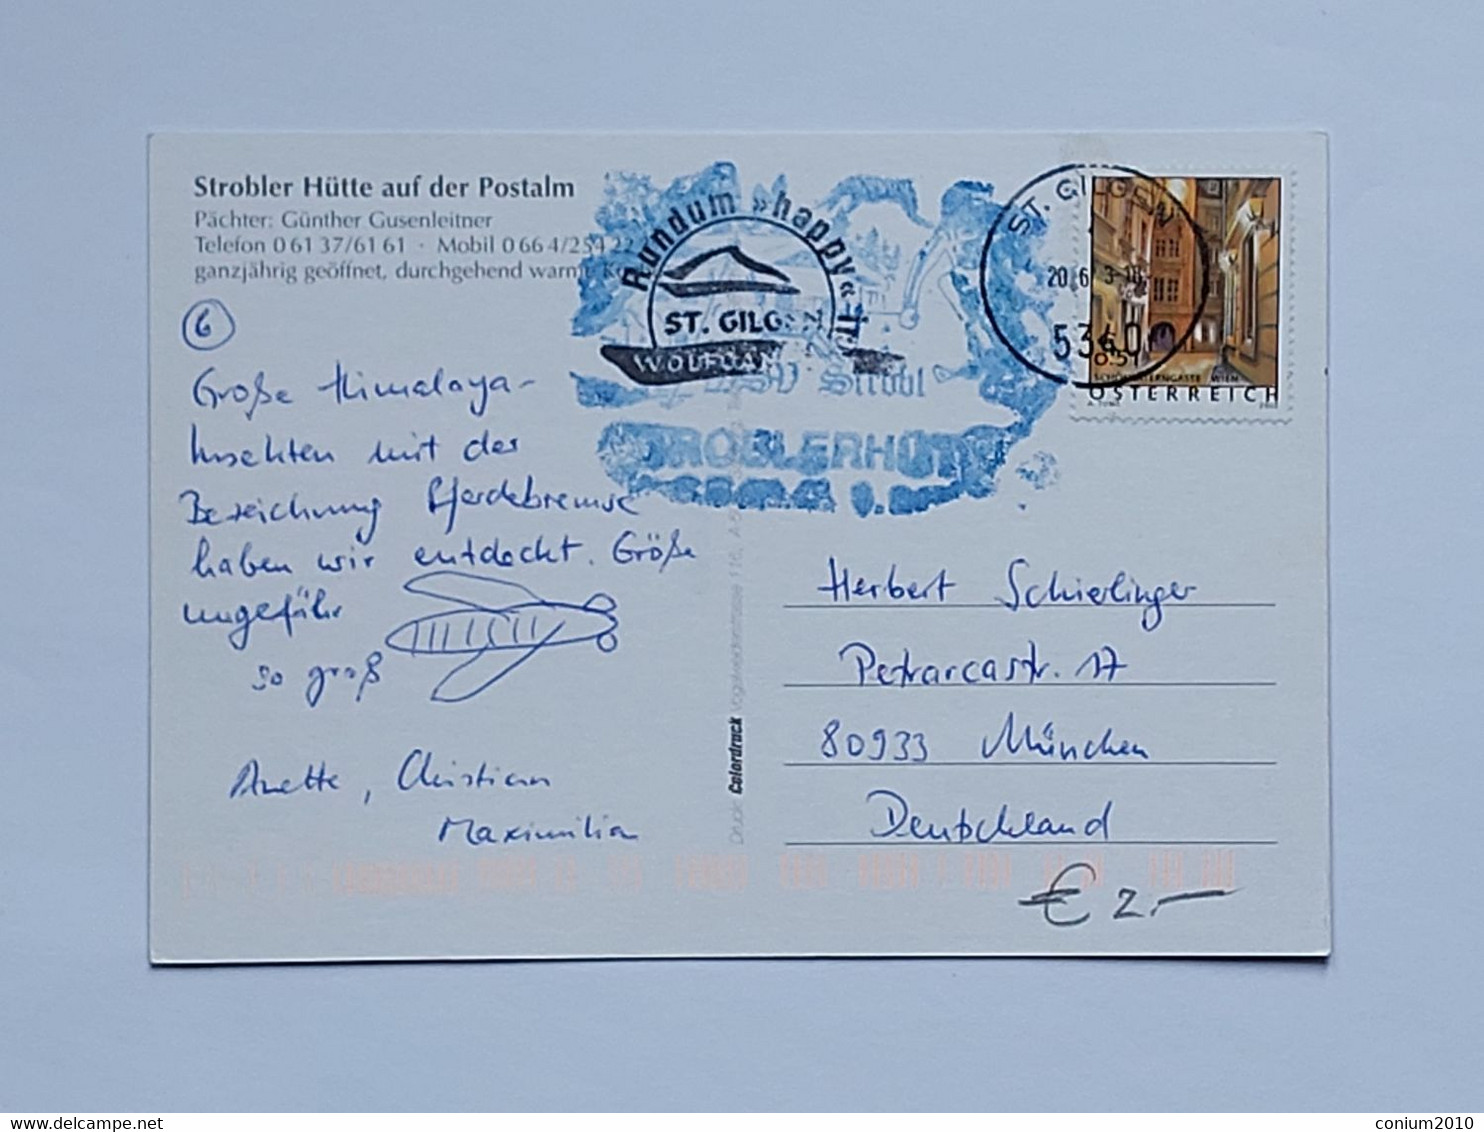 Strobler Hütte auf der Postalm
Pächter: Günther Gusenleitner
Telefon 0 61 37/61 61 · Mobil 0 66 4/2 54 22
ganzjährig geöffnet, durchgehend warme
6
Große Himalaya-
Insekten mit der
Bezeichnung Pferdebremse
haben wir entdeckt. Größe
ungefähr
so groß
Anette, Christian
Maximilian
Rundum »happy«
ST. GILGEN
WOLFGAN
SV Strobl
STROBLERHÜTT
ST. GILGEN
20.6. 3-18
5340
0.51
SCHÖNLATERNGASTE WIEN
ÖSTERREICH
Druck: Colordruck
Herbert Schierlinger
Petrarcastr. 17
80933 München
Deutschland
€ 2.—
delcampe.net
conium2010